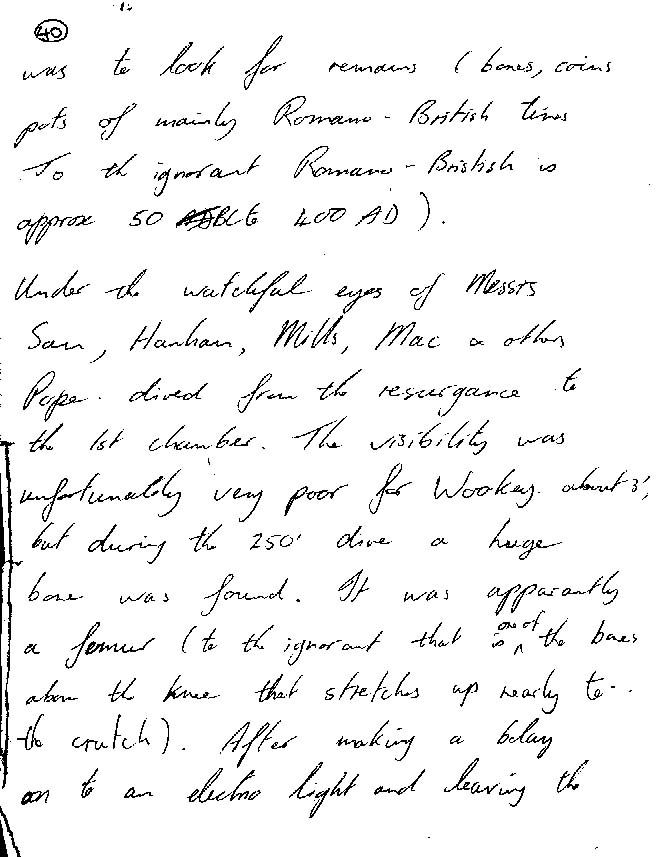 40
was to look for remains (bones, coins
pots of mainly Romano-British times
To the ignorant Romano-British is
approx 50 BC to 400 AD).
Under the watchful eyes of Messrs
Sam, Hanham, Mills, Mac & others
Pope. dived from the resurgance to
the 1st chamber. The visibility was
unfortunately very poor for Wookey. about 3',
but during the 250' dive a huge
bone was found. It was apparantly
a femur (to the ignorant that is one of the bones
above the knee that stretches up nearly to
the crutch). After making a belay
on to an electric light and leaving the